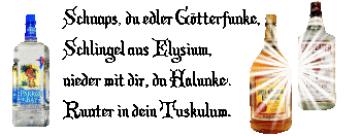 Schnaps, du edler Götterfunke,
Schlingel aus Elysium,
nieder mit dir, du Halunke.
Runter in dein Tuskulum.
PARROT BAY